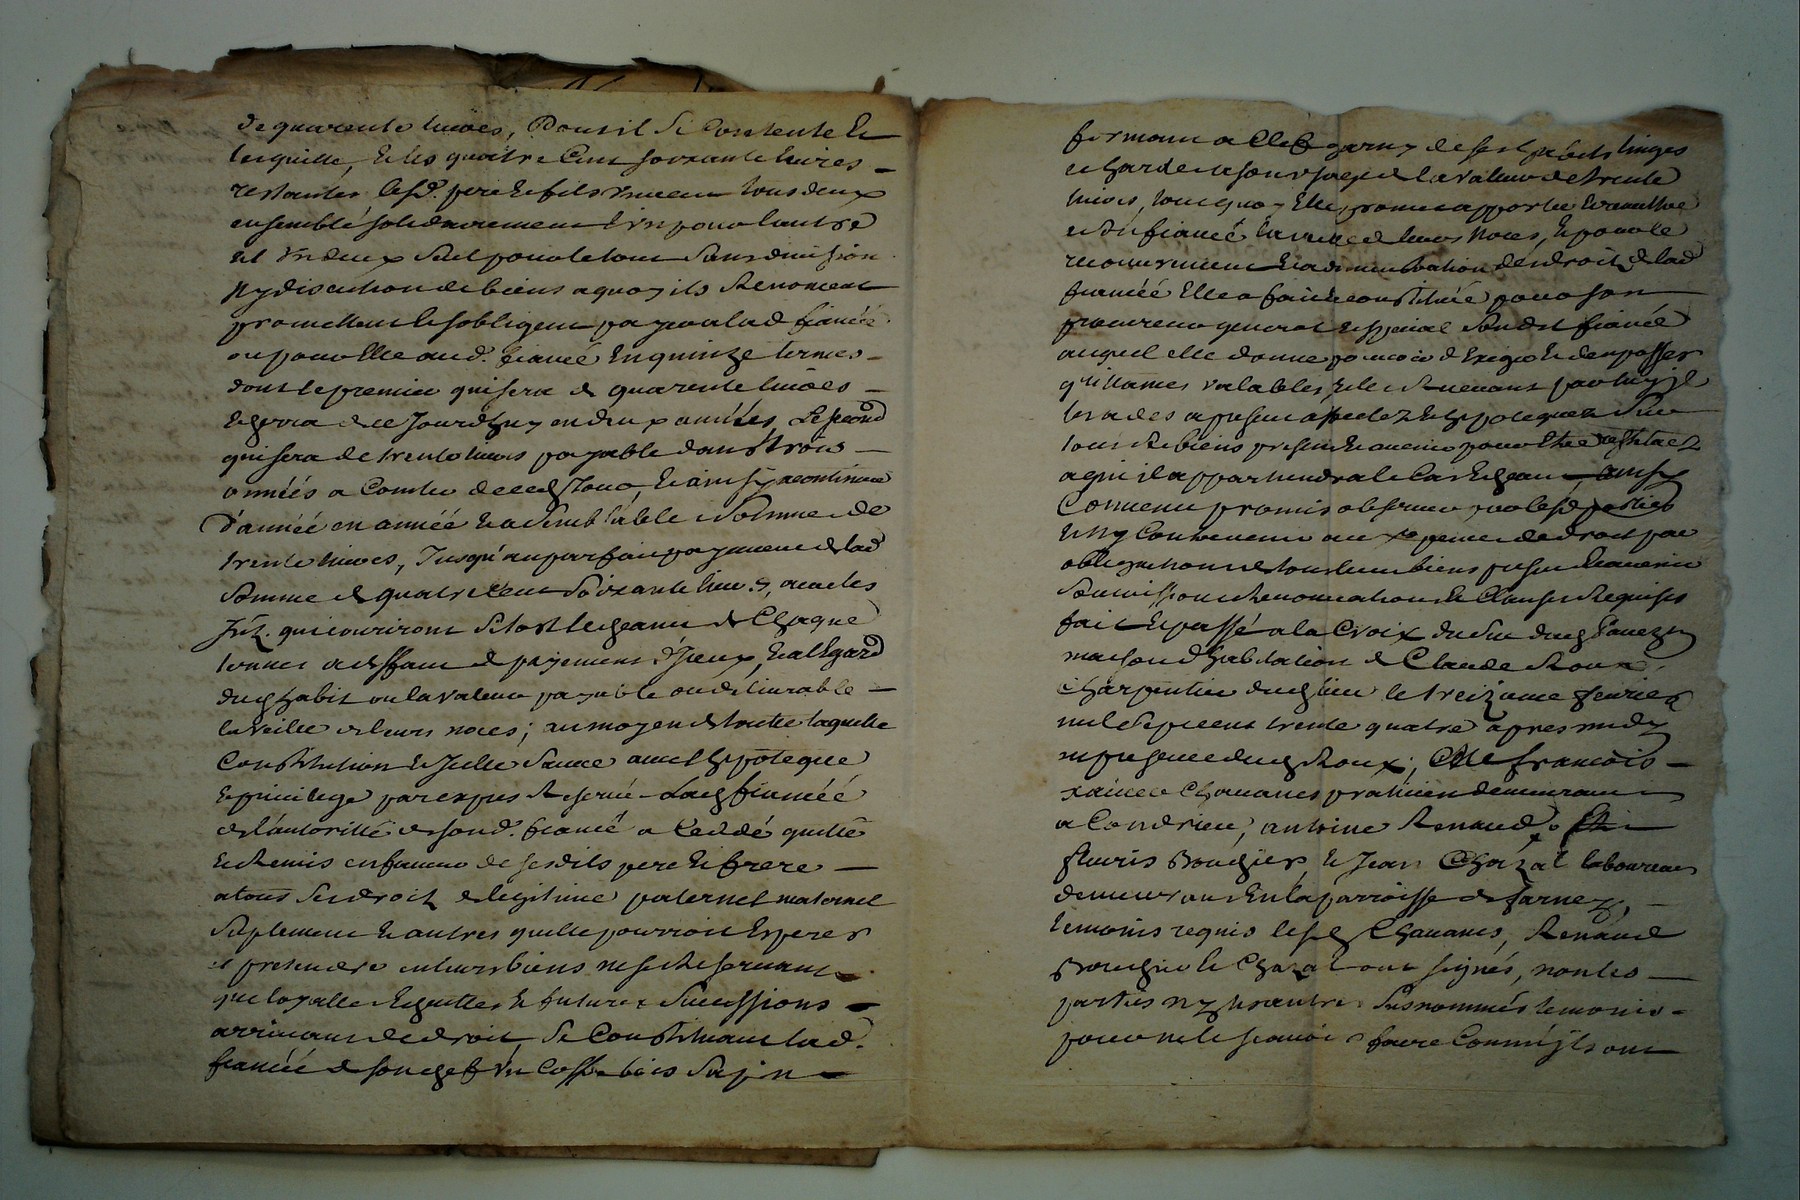 de quarente livres, Dont il se Contente et
les quitte, et les quatre Cent soixante livres
restantes, lesd. pere et fils promettent tous deux
ensemble solidairement l'un pour l'autre
et un deux seul pour le tout sans division
ny discution de biens a quoy ils Renoncent
promettent et s'obligent payer a lad fiancée
ou pour Elle aud. fiancé En quinze termes
dont le premier qui sera de quarente livres
Echerra de ce Jourdhuy en deux années, Le second
qui sera de trente livres payable dans trois
années a Compter de ced Jour, et ainsy a continuer
d'année en année la semblable somme de
trente livres, Jusqu'au parfait payement de lad
somme de quatre Cent soixante livres, avec les
Intz. qui couriront sitost l'echeance de Chaque
termes a deffaut de payement d'Iceux, Et a l'Egard
dud habit ou la valeur payable ou delivrable
la veille de leurs noces; au moyen de toute laquelle
Constitution et Icelle sauve avec l'hypoteque
Et privilege par expres Reservé Lad fiancée
de l'autoritté de sond. fiancé a Ceddé quitté
et Remis en faveur de sesdits pere et frere
a tous ses droitz de legitime paternel maternel
suplement et autres quelle pourroit Esperer
et pretendre en leurs biens ne se Reservant
que loyalle Eschuttes et futures successions
arrivant de droit, se Constituant lad.
fiancée de son chef un Coffre bois sapin
fermant a Clef garny de ses habits linges
et hardes a son usage de la valleur de trente
livres, tout quoy Elle promet apporter et remettre
aud fiancé la veille de leurs Noces, Et pour le
recouvrement et administration des droits de lad
fiancée Elle a fait et constitué pour son
procureur general et special sondit fiancé
auquel elle donne pouvoir d'Exiger et den passer
quittances valables, et le Revenant par luy Il
les a des a present affectez et hypotequez sur
tous ses biens presens et avenir pour Etre restituez
a qui il appartiendra le Cas Echeant ainsy
Convenu promis observer par lesd parties
et ny Contrevenir aux peines de droit par
obligation de tous leurs biens presens et avenir
soumissions Renonciations et Clauses Requises
fait et passé a la Croix du
maison d'habitation de Claude Roux
Charpentier dud lieu le treizieme fevrier
mil sept cent trente quatre apres midy
en presence dud Roux, Me francois
Chavanes praticien demeurant
a Condrieu, antoine Renaud,
fleuris Bouchier, et Jean Chazal laboureurs
demeurans En la parroisse de farnez,
temoins requis lesd Chavanes, Renaud
Bouchier et Chazal ont signés, non les
parties ny les autres susnommés temoins
pour ne le scavoir faire Comm'ils ont